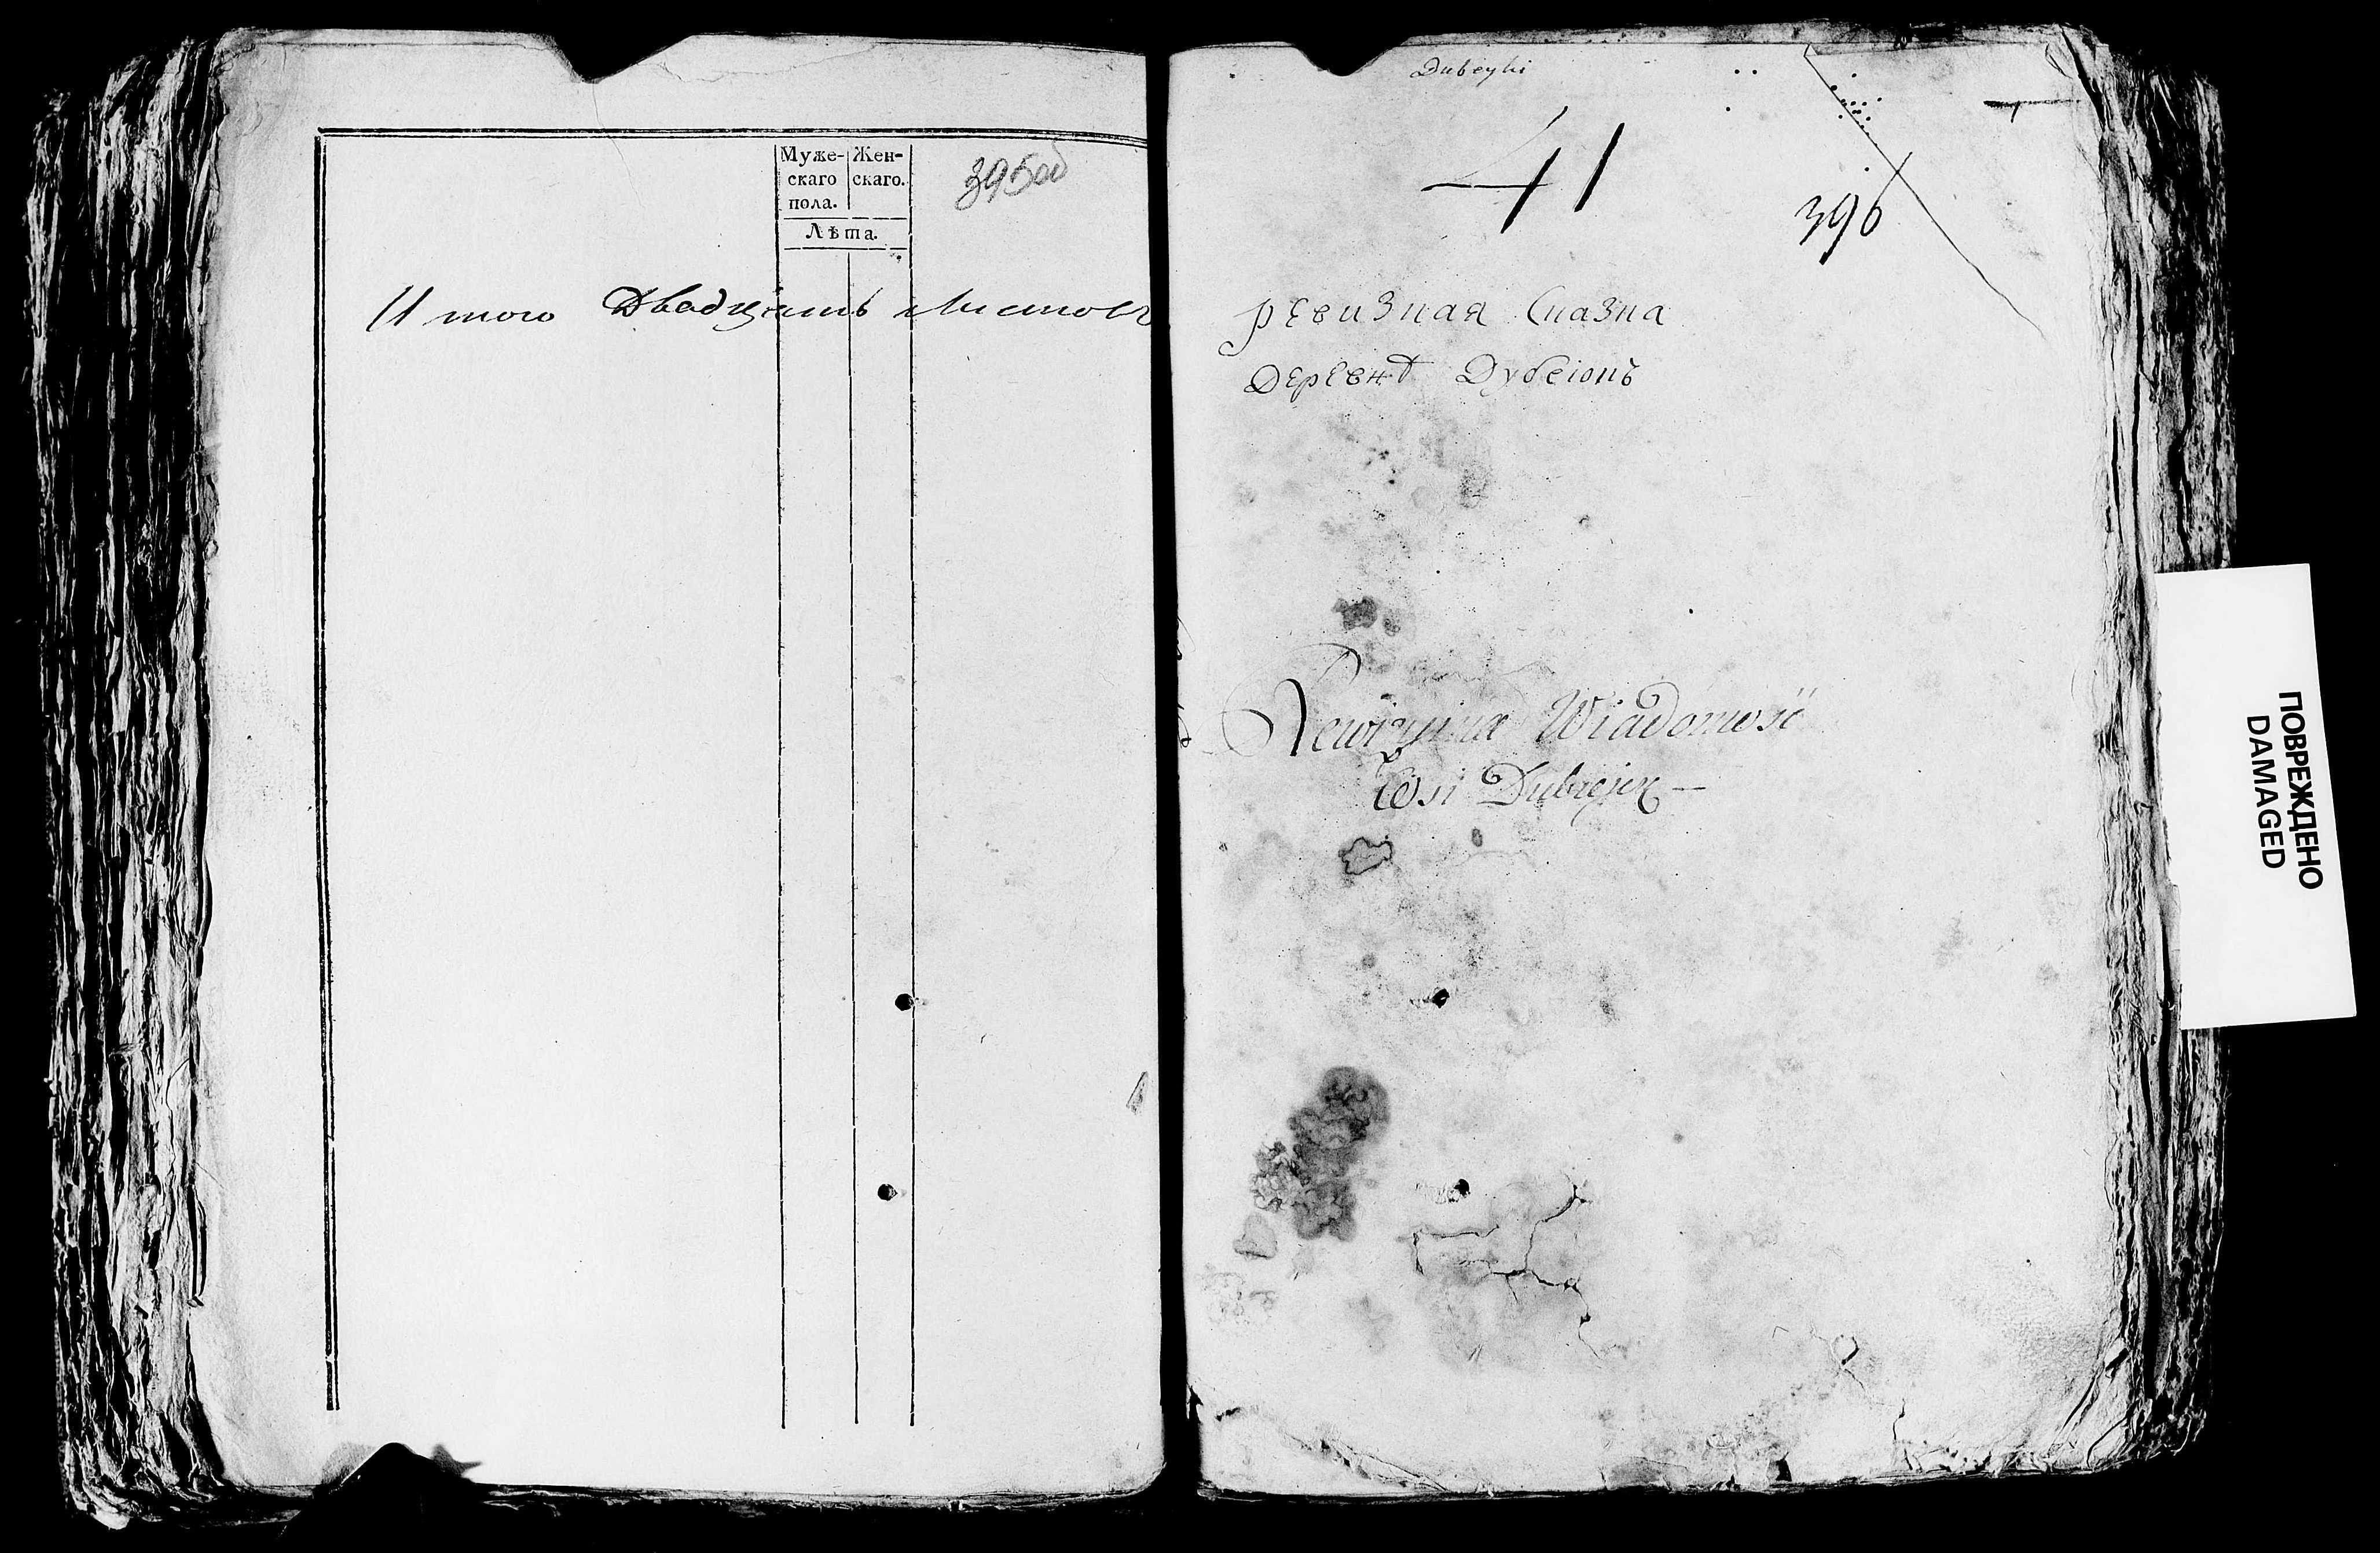 Муже-
скаго
пола.
Жен-
скаго.
Лѣта.
395об
Итого Двадцать Листовъ
Dubeyki
41
396
Ревизная Сказка
Деревнѣ Дубеюкъ
Rewizyina Wiadomość
Wsi
ПОВРЕЖДЕНО
DAMAGED